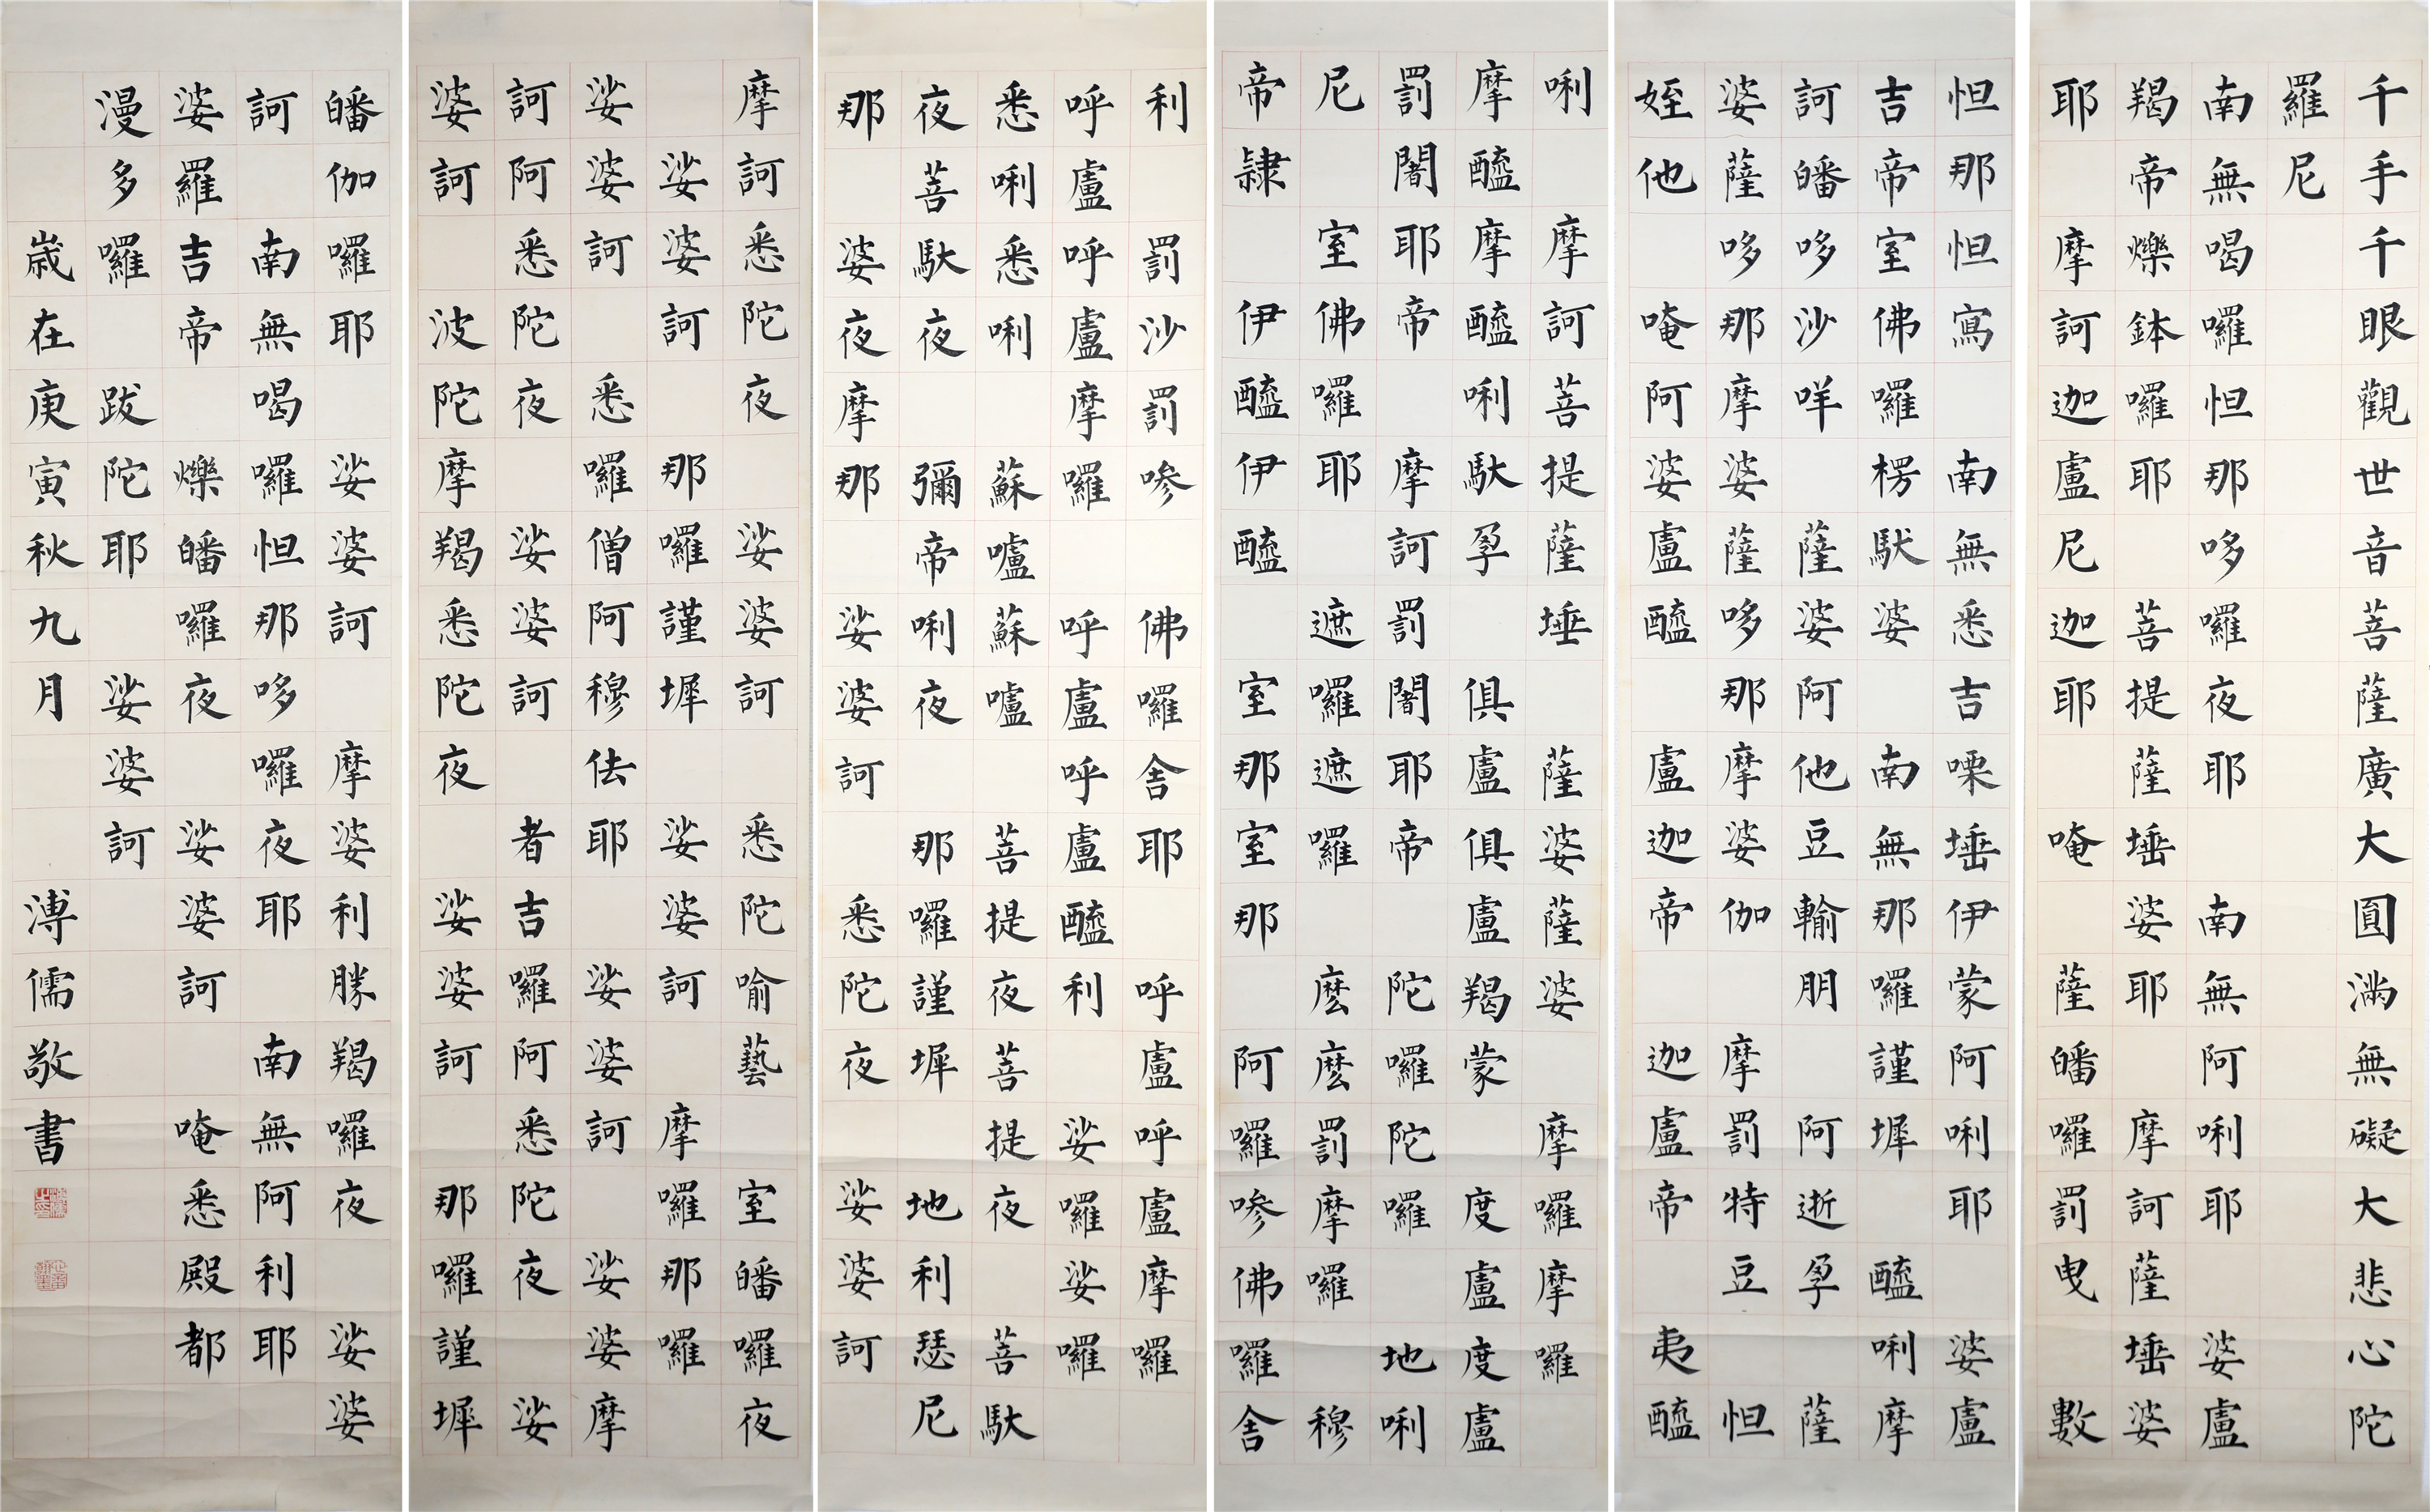 千手千眼觀世音菩薩廣大圓滿無礙大悲心陀
羅尼
南無喝囉怛那哆囉夜耶 南無阿唎耶 婆盧
羯帝爍鉢囉耶 菩提薩埵婆耶 摩訶薩埵婆
耶 摩訶迦盧尼迦耶 唵 薩皤囉罰曳 數
怛那怛寫 南無悉吉㗚埵伊蒙阿唎耶 婆盧
吉帝室佛囉 楞馱婆 南無那囉謹墀 醯唎摩
訶皤哆沙咩 薩婆阿他豆輸朋 阿逝孕 薩
婆薩哆那摩婆薩哆那摩婆伽 摩罰特豆 怛
姪他 唵阿婆盧醯 盧迦帝 迦盧帝 夷醯
唎 摩訶菩提薩埵 薩婆薩婆 摩囉摩囉
摩醯摩醯唎馱孕 俱盧俱盧羯蒙 度盧度盧
罰闍耶帝 摩訶罰闍耶帝 陀囉陀囉 地唎
尼 室佛囉耶 遮囉遮囉 麼麼罰摩囉 穆
帝隸 伊醯伊醯 室那室那 阿囉嘇佛囉舍
利 罰沙罰嘇 佛囉舍耶 呼盧呼盧摩囉
呼盧呼盧摩囉 呼盧呼盧醯利 娑囉娑囉
悉唎悉唎 蘇嚧蘇嚧 菩提夜菩提夜 菩馱
夜菩馱夜 彌帝唎夜 那囉謹墀 地利瑟尼
那 婆夜摩那 娑婆訶 悉陀夜 娑婆訶
摩訶悉陀夜 娑婆訶 悉陀喻藝 室皤囉夜
娑婆訶 那囉謹墀 娑婆訶 摩囉那囉
娑婆訶 悉囉僧阿穆佉耶 娑婆訶 娑婆摩
訶阿悉陀夜 娑婆訶 者吉囉阿悉陀夜 娑
婆訶 波陀摩羯悉陀夜 娑婆訶 那囉謹墀
皤伽囉耶 娑婆訶 摩婆利勝羯囉夜 娑婆
訶 南無喝囉怛那哆囉夜耶 南無阿利耶
婆羅吉帝 爍皤囉夜 娑婆訶 唵悉殿都
漫多囉 跋陀耶 娑婆訶
歲在庚寅秋九月 溥儒敬書